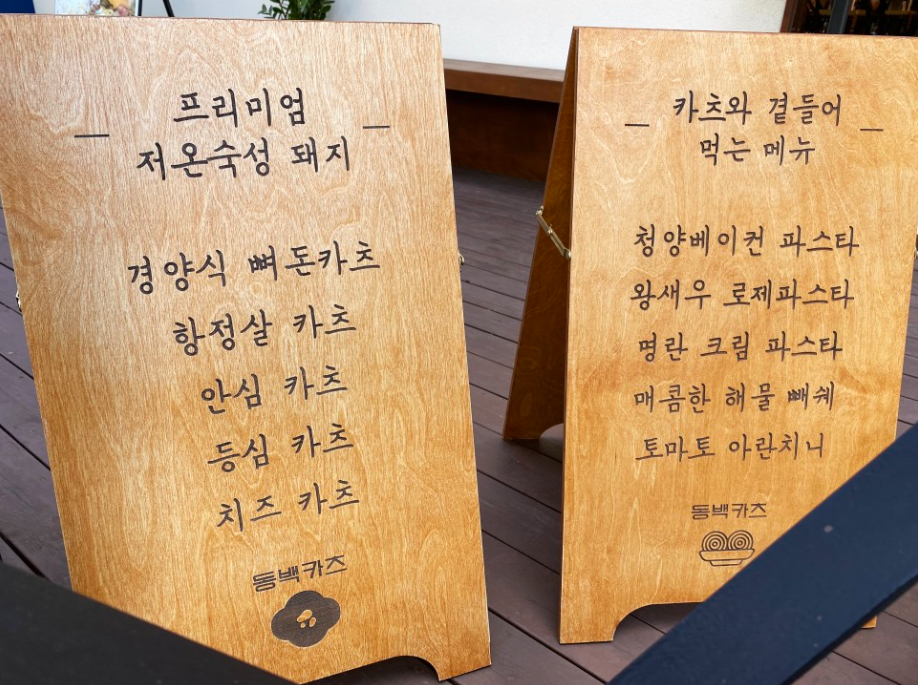 프리미엄
저온숙성 돼지
경양식 뼈돈카츠
항정살 카츠
안심 카츠
등심 카츠
치즈 카츠
동백카츠
카츠와 곁들어
먹는 메뉴
청양베이컨 파스타
왕새우 로제파스타
명란 크림 파스타
매콤한 해물 빼쉐
토마토 아란치니
동백카츠